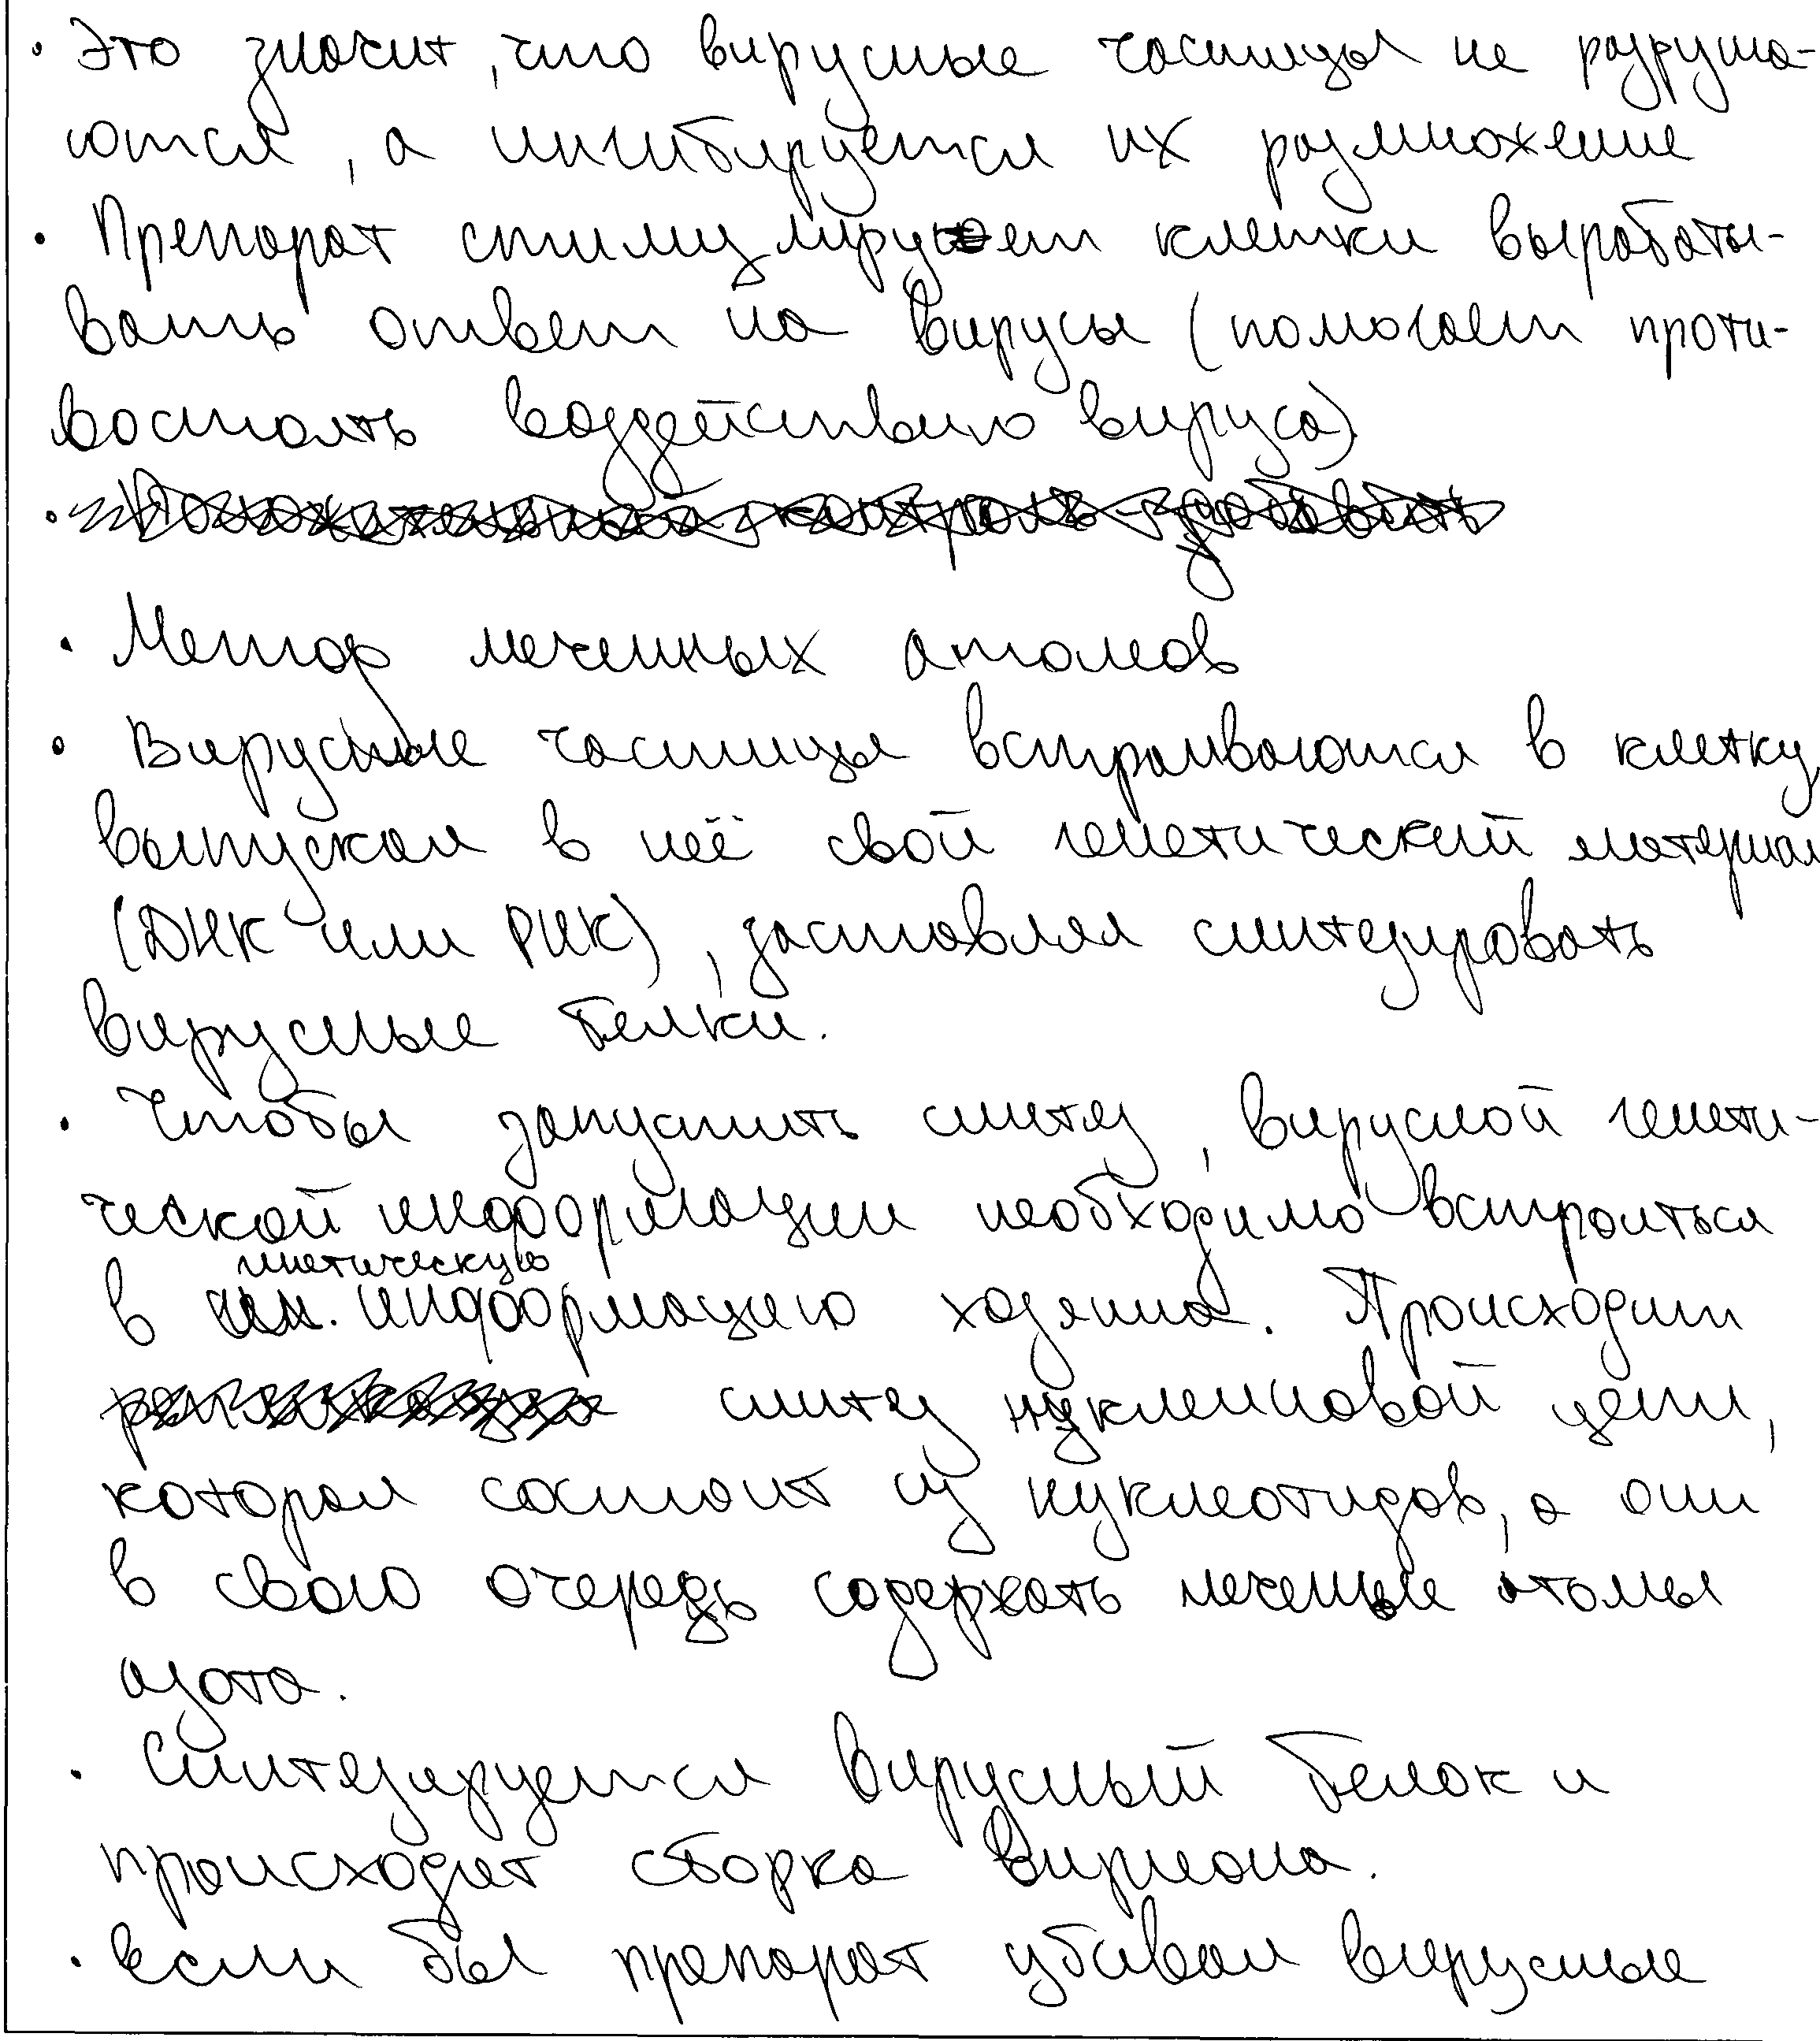 · Это значит, что вирусные частицы не разруша-
ются, а ингибируется их размножение
· Препарат стимулирует клетки вырабаты-
вать ответ на вирусы (помогает проти-
востоять воздействию вируса).
· Метод меченных атомов
· Вирусные частицы встраиваются в клетку
выпуская в неё свой генетический материал
(ДНК или РНК), заставляя синтезировать
вирусные белки.
· Чтобы запустить синтез, вирусной генети-
ческой информации необходимо встроиться
в генетическую информацию хозяина. Происходит
синтез нуклеиновой цепи,
которая состоит из нуклеотидов, а они
в свою очередь содержать меченые атомы
азота.
· Синтезируется вирусный белок и
происходит сборка вириона.
· Если бы препарат убивал вирусные